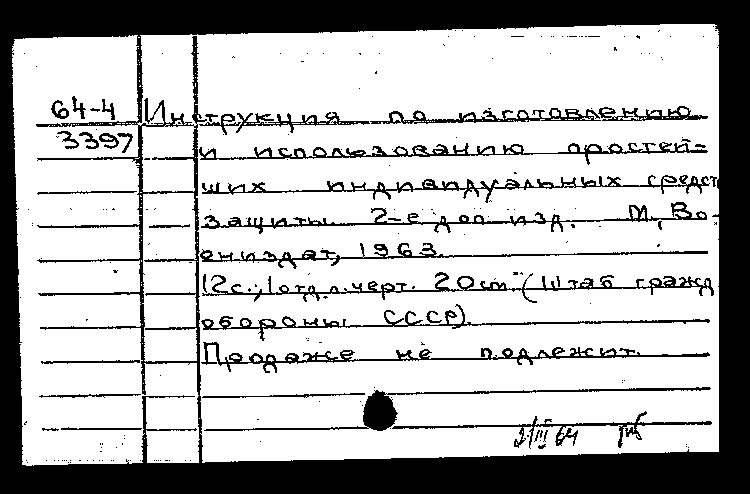 64-4 Инструкция по изготовлению
3397 и использованию простей=
ших индивидуальных средст
защиты. 2-е доп изд. М., Во-
ениздат, 1963.
12с.; 1 отд.л.черт. 20cm. (Штаб гражд
обороны СССР).
Продаже не подлежит.
3/III 64